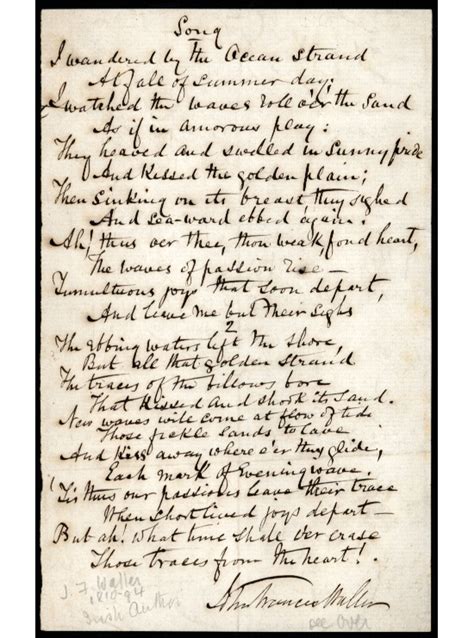 Song
I wandered by the Ocean Strand
At fall of summer day;
I watched the waves roll o'er the Sand
As if in amorous play:
They heaved and swelled in Sunny pride
And Kissed the golden plain;
Then Sinking on its breast they sighed
And Sea-ward ebbed again.
Ah! thus oer thee, thou weak, fond heart,
The waves of passion rise —
Tumultuous joys that soon depart,
And leave me but their sighs
2
The Ebbing waters left the shore,
But all that golden strand
The traces of the billows bore
That Kissed and shook its Sand.
New waves will come at flow of tide
Those fickle Sands to lave
And Kiss away where e'er they glide,
Each mark of Evening wave.
'Tis thus our passions leave their trace
When short lived joys depart —
But ah! what time shall ever erase
Those traces from the heart!
John Francis Waller
J. F. Waller
1810-94
Irish Author
see over